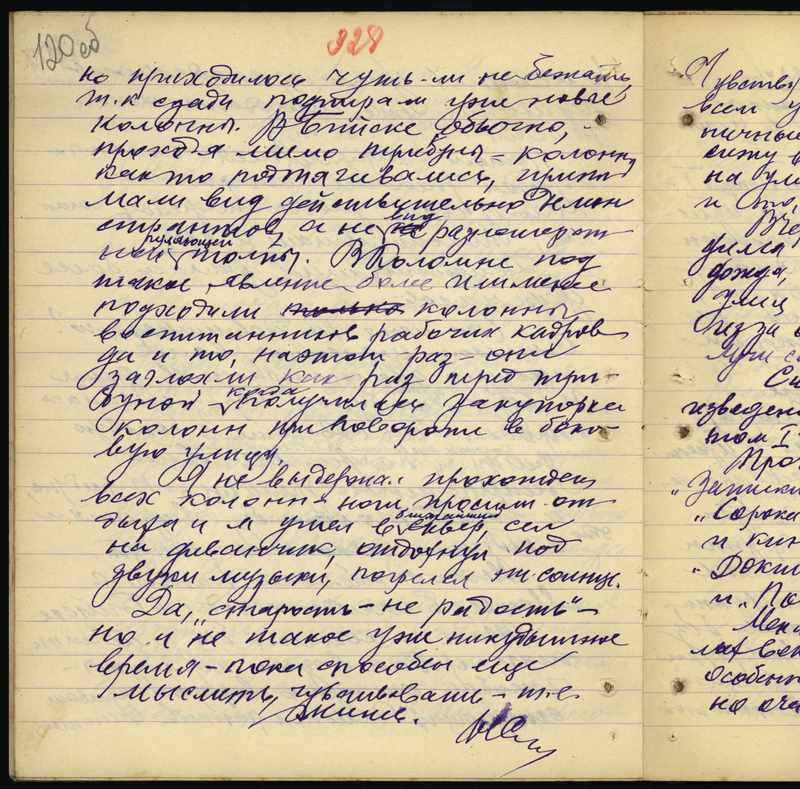 120 об
328
но приходилось чуть-ли не бежать,
т.к сзади подпирали уже новые
колонны. В Бийске обычно,
проходя мимо трибуны - колонны
как то подтягивались, прини-
мали вид действительно демон
странтов, а не вид разношерст
ной гуляющей толпы. В Коломне под
такое явление более и менее
подходили только колонны
воспитанников рабочих кадров
да и то, на этот раз - они
заглохли как раз перед три-
буной когда получилась закупорка
колонн при повороте в боко-
вую улицу.
Я не выдержал прохождения
всех колонн - ноги просили от
дыха и я ушел в ближайший сквер, сел
на диванчик, отдохнул под
звуки музыки, погрелся на солнце.
Да, "старость - не радость" -
но и не такое уже никудышное
время - пока способен еще
мыслить, чувствовать - т.е.
жить.
Чувство
всем у
пичные
сижу в
на ули
и что,
Вче
дился
дождя,
улиц
из за
Си
изведен
том I
Про
"Записки
"Сорока
и кни
"Докт
и "По
особенн
на оча